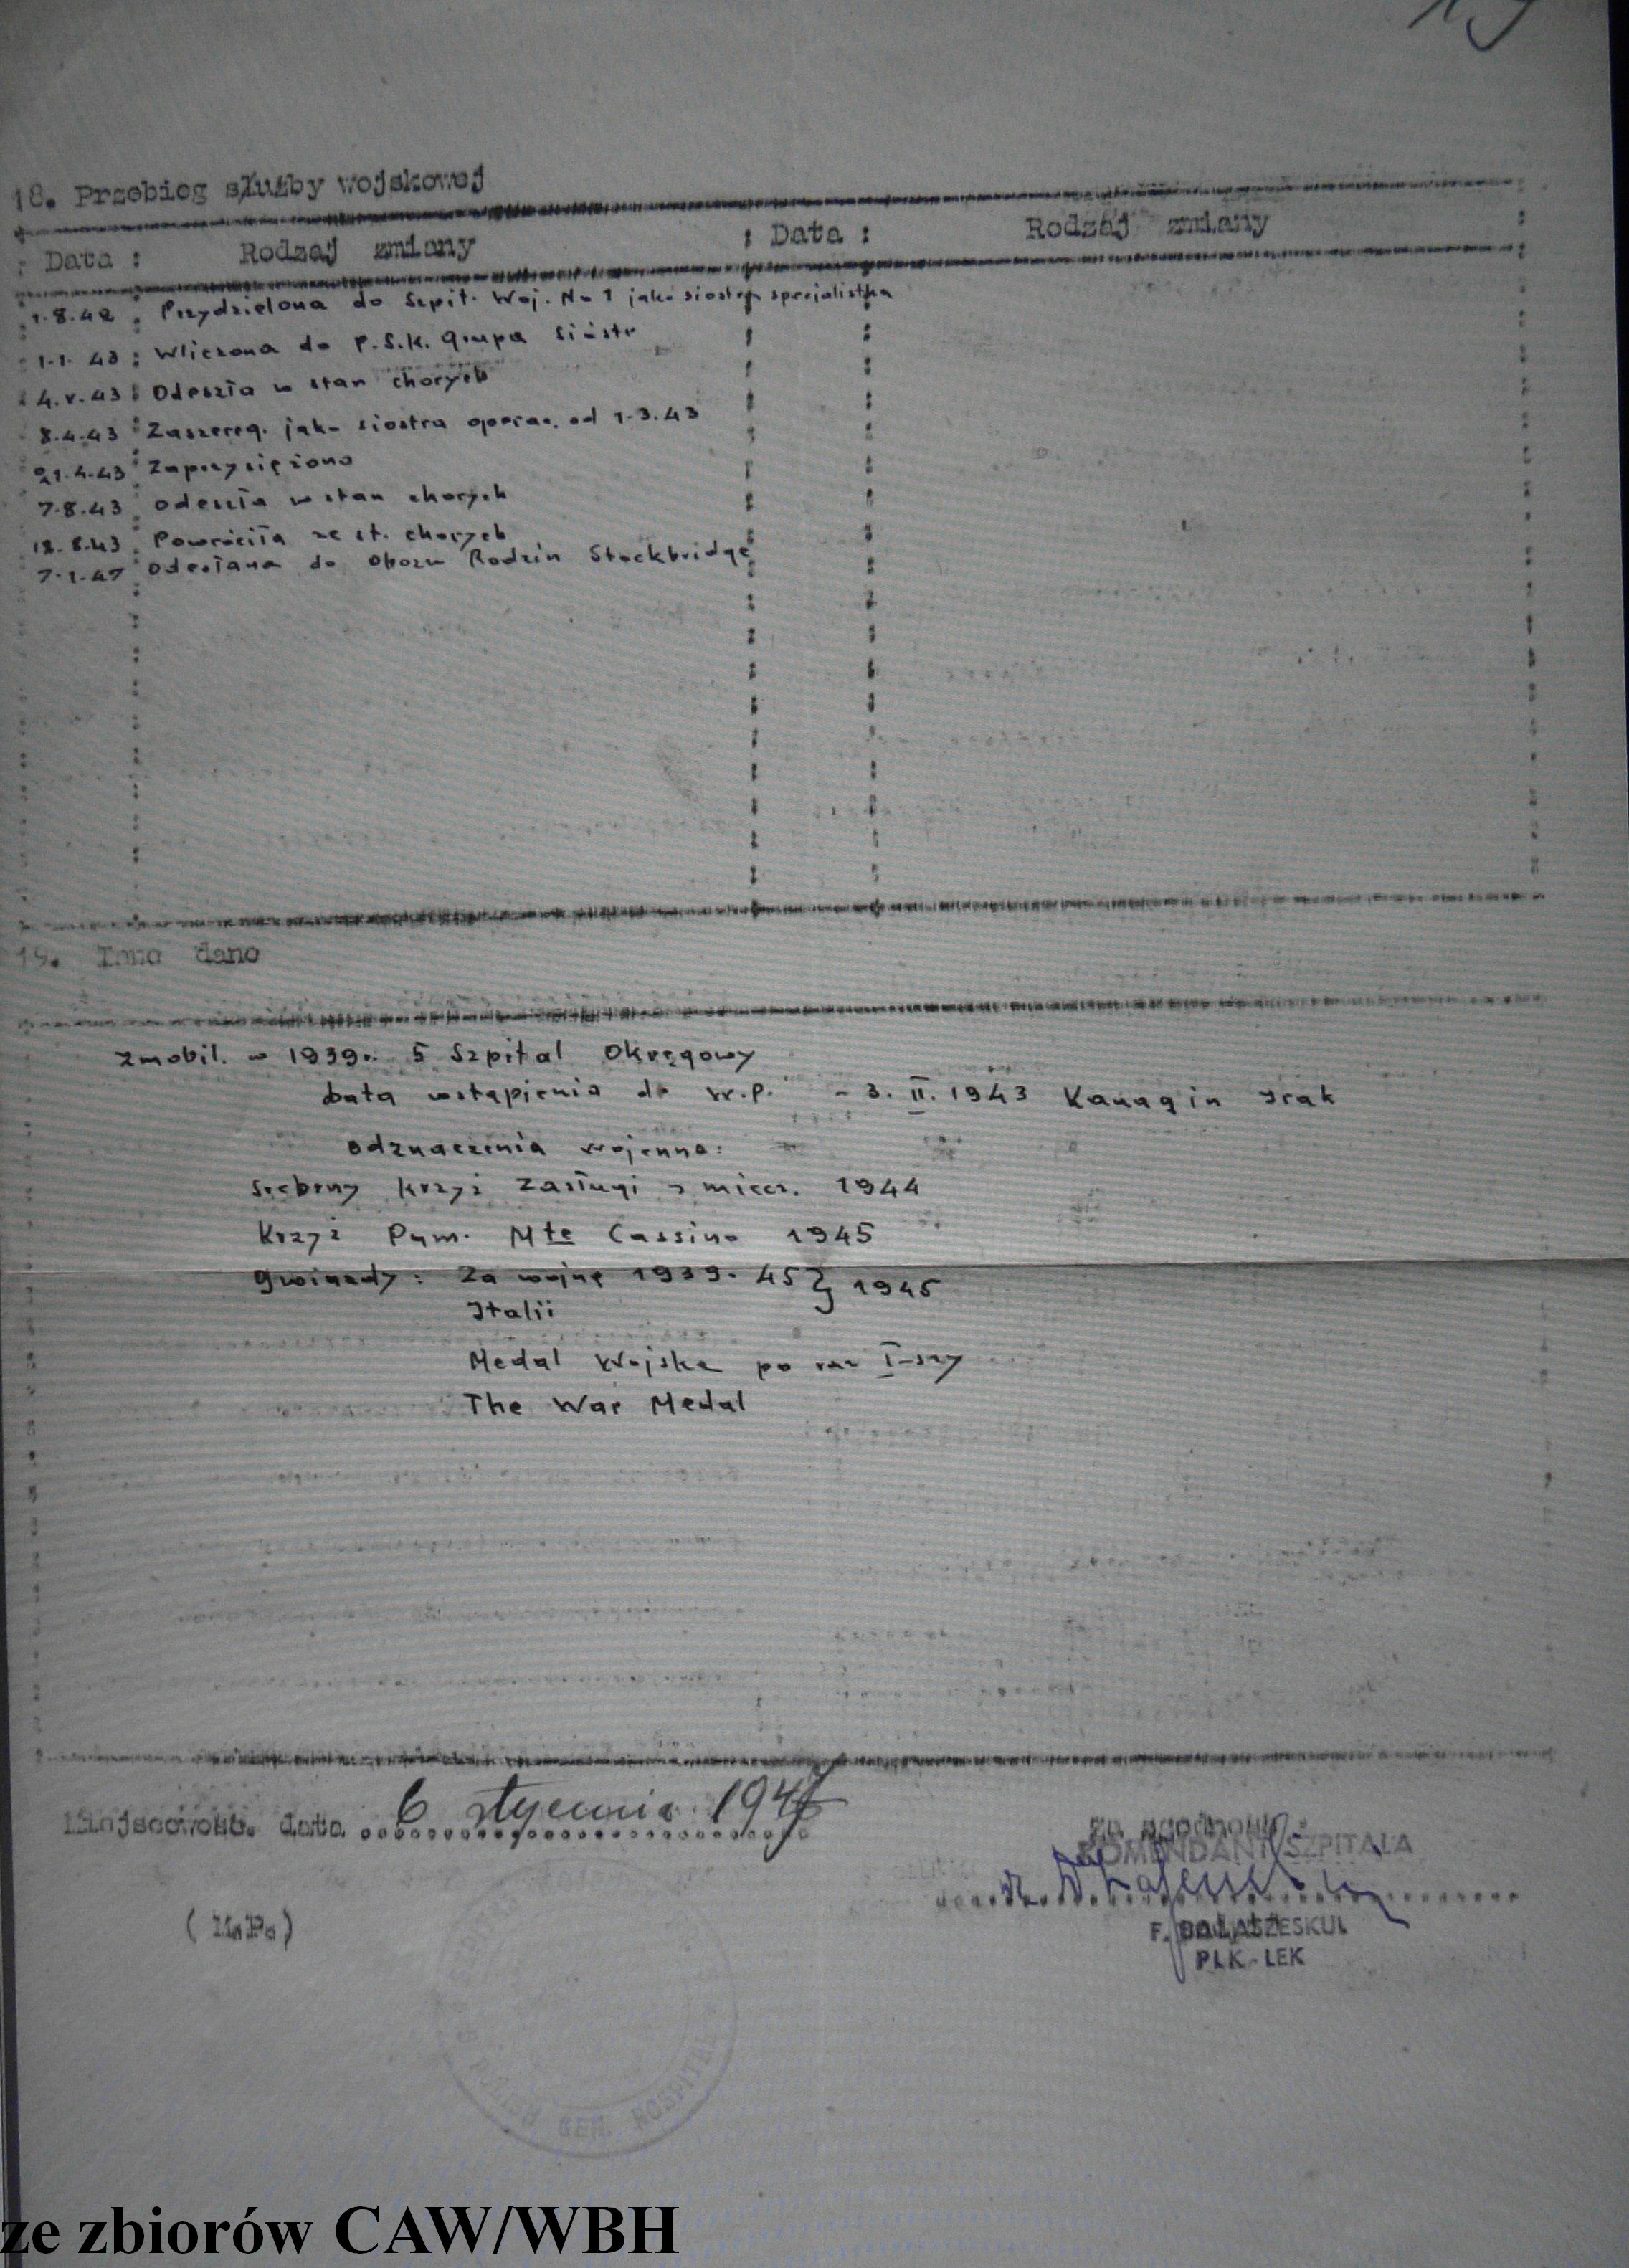 19
18. Przebieg służby wojskowej
Data : Rodzaj zmiany : Data : Rodzaj zmiany :
1.8.42 : Przydzielona do Szpit. Woj. No 1 jako siostra specjalistka
1.1.43 : Wliczona do P.S.K. Grupa Sióstr
4.V.43 : Odeszła w stan chorych
8.4.43 : Zaszereg. jako siostra operac. od 1.3.43
21.4.43 : Zaprzysiężona
7.8.43 : Odeszła w stan chorych
12.8.43 : Powróciła ze st. chorych
7.1.47 : Odesłana do Obozu Rodzin Stockbridge
19. Inne dane
zmobil. w 1939r. 5 Szpital Okręgowy
Data wstąpienia do W.P. - 3. II. 1943 Kanaqin Irak
Odznaczenia wojenne:
Srebrny Krzyż Zasługi z miecz. 1944
Krzyż Pam. Mte Cassino 1945
Gwiazdy: Za wojnę 1939-45 } 1945
Italii
Medal Wojska po raz I-szy
The War Medal
Miejscowość, data 6 stycznia 1947
Za zgodność:
KOMENDANT SZPITALA
( M.P. )
F. PAŁASZESKUL
PŁK.-LEK
POLISH GEN. HOSPITAL
ze zbiorów CAW/WBH